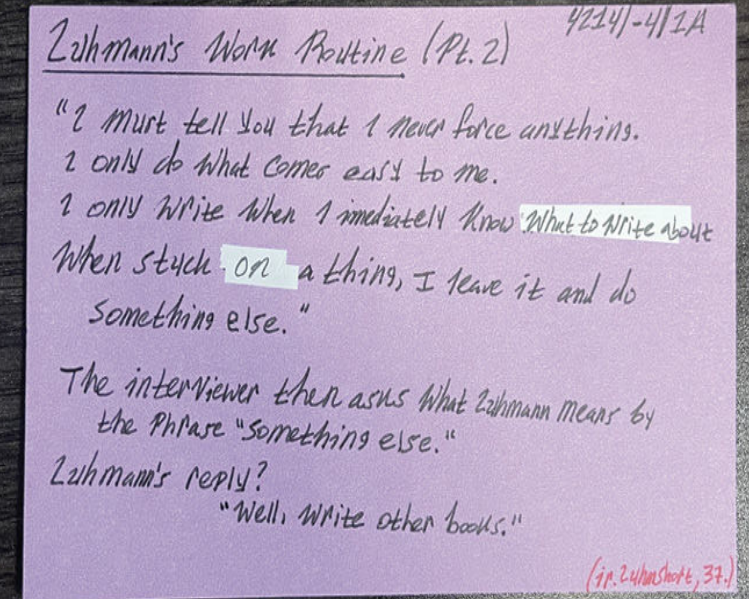 4214/-4/1A
Luhmann's Work Routine (Pt. 2)
"I must tell you that I never force anything.
I only do what comes easy to me.
I only write when I imediately know what to write about
When stuck on a thing, I leave it and do
something else."
The interviewer then asks what Luhmann means by
the phrase "something else."
Luhmann's reply?
"Well, write other books."
(in. Luhmshort, 37.)